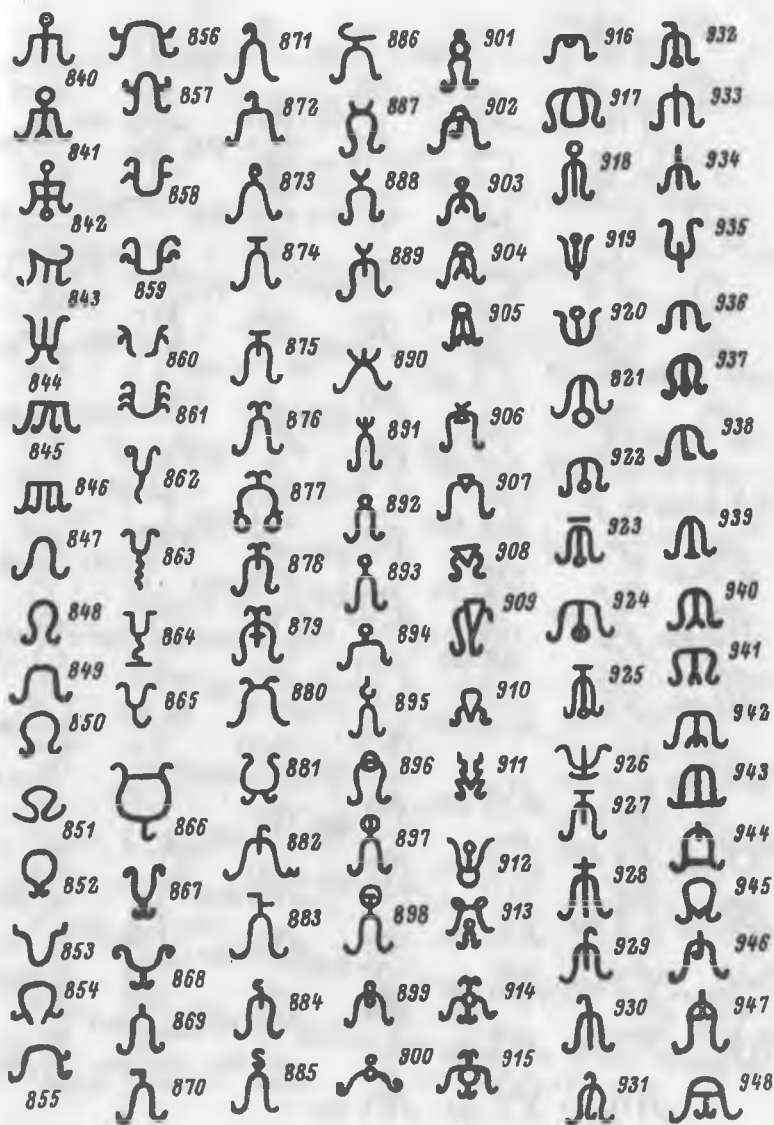 840
841
842
843
844
845
846
847
848
849
850
851
852
853
854
855
856
857
858
859
860
861
862
863
864
865
866
867
868
869
870
871
872
873
874
875
876
877
878
879
880
881
882
883
884
885
886
887
888
889
890
891
892
893
894
895
896
897
898
899
900
901
902
903
904
905
906
907
908
909
910
911
912
913
914
915
916
917
918
919
920
821
922
923
924
925
926
927
928
929
930
931
932
933
934
935
936
937
938
939
940
941
942
943
944
945
946
947
948